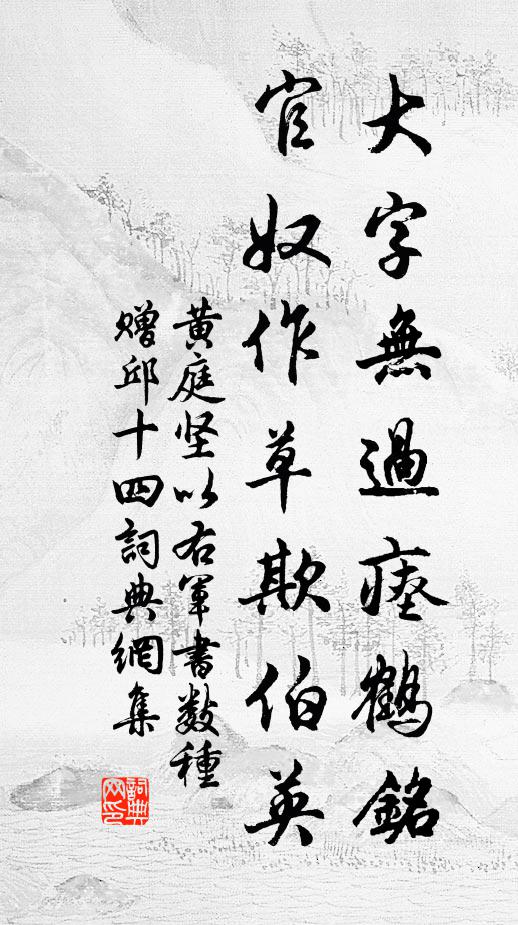 大字無過瘞鶴銘
官奴作草欺伯英
黄庭坚以右軍書数種
贈邱十四詞典網集
詞典網印